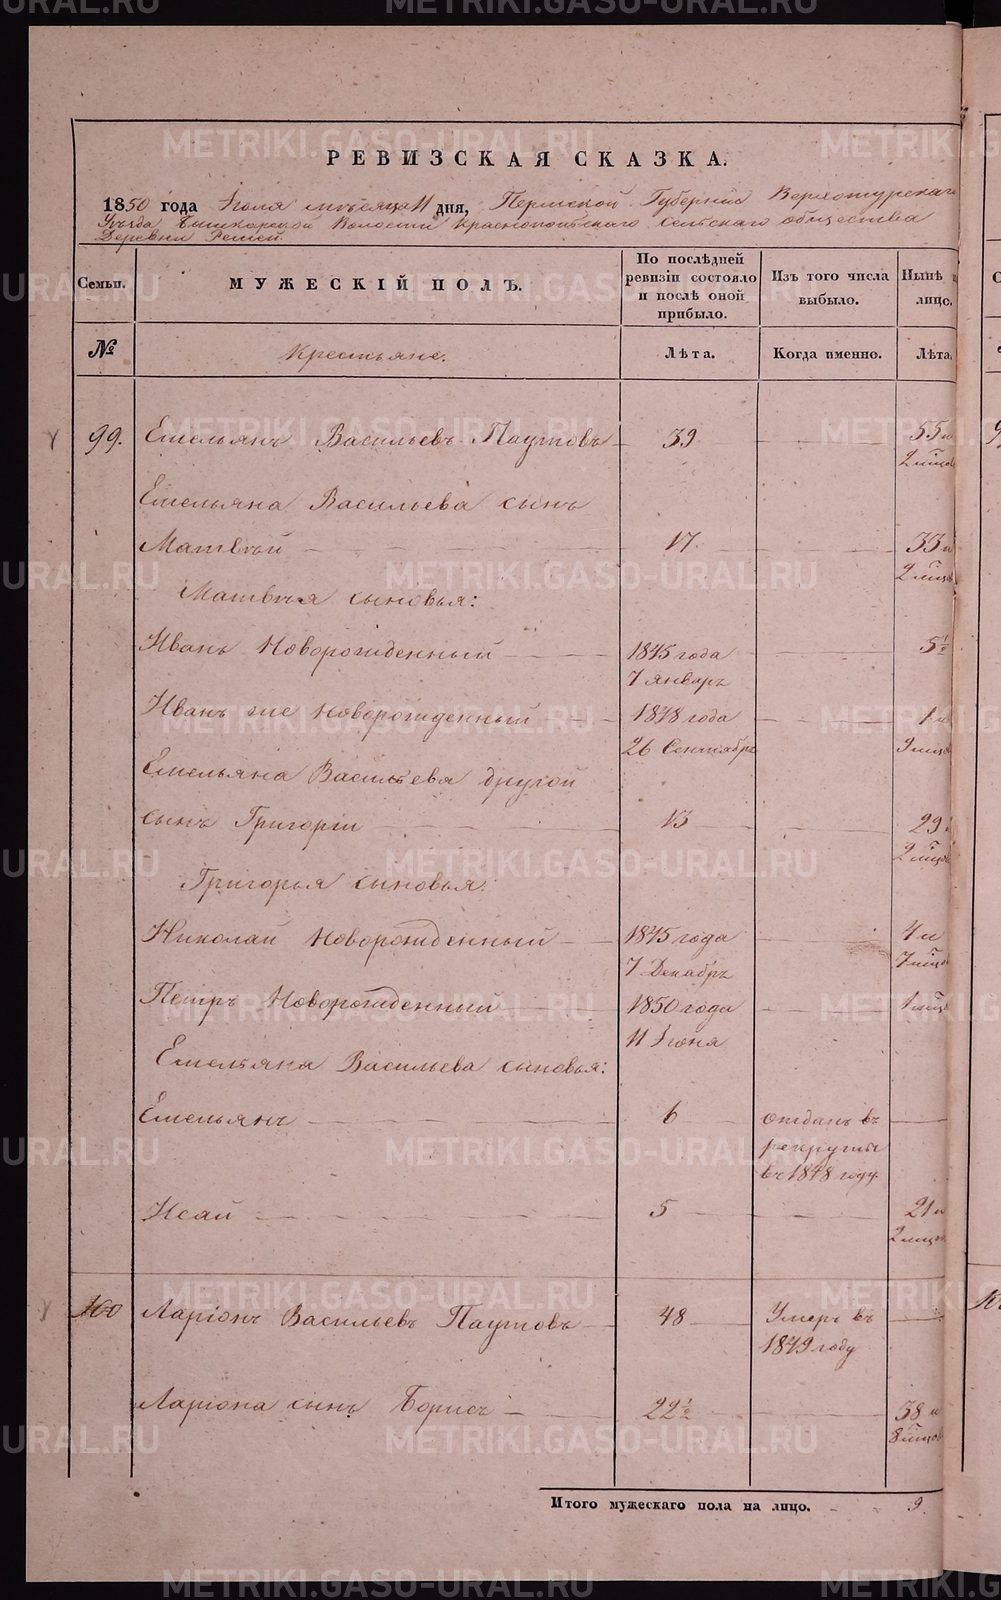 РЕВИЗСКАЯ СКАЗКА.
1850 года Іюля мѣсяца 11 дня, Пермской Губерніи Верхотурскаго
Уѣзда Башкарской Волости Краснопольскаго Сельскаго общества
Деревни Решей.
Семьи.
МУЖЕСКІЙ ПОЛЪ.
По послѣдней
ревизіи состояло
и послѣ оной
прибыло.
Изъ того числа
выбыло.
Нынѣ
лицо.
№
Крестьяне.
Лѣта.
Когда именно.
Лѣта.
99. Емельянъ Васильевъ Паутовъ 39 55 и
2 мѣсяц
Емельяна Васильева сынъ
Матвѣй 17 33 и
2 мѣсяц
Матвѣя сыновья:
Иванъ Новорожденный 1845 года 5½
7 январъ
Иванъ же Новорожденный 1848 года 1 и
26 Сентябръ 9 мѣсяц
Емельяна Васильева другой
сынъ Григорій 13 29 и
2 мѣсяц
Григорья сыновья:
Николай Новорожденный 1845 года 4 и
7 Декабръ 7 мѣсяц
Петръ Новорожденный 1850 года 1 мѣсяц
11 Іюня
Емельяна Васильева сыновья:
Емельянъ 6 отданъ въ
рекруты
въ 1848 году.
Исай 5 21 и
2 мѣсяц
100 Ларіонъ Васильевъ Паутовъ 48 Умеръ въ
1849 году
Ларіона сынъ Борисъ 22½ 38 и
8 мѣсяцов
Итого мужескаго пола на лицо. 9.
METRIKI.GASO-URAL.RU